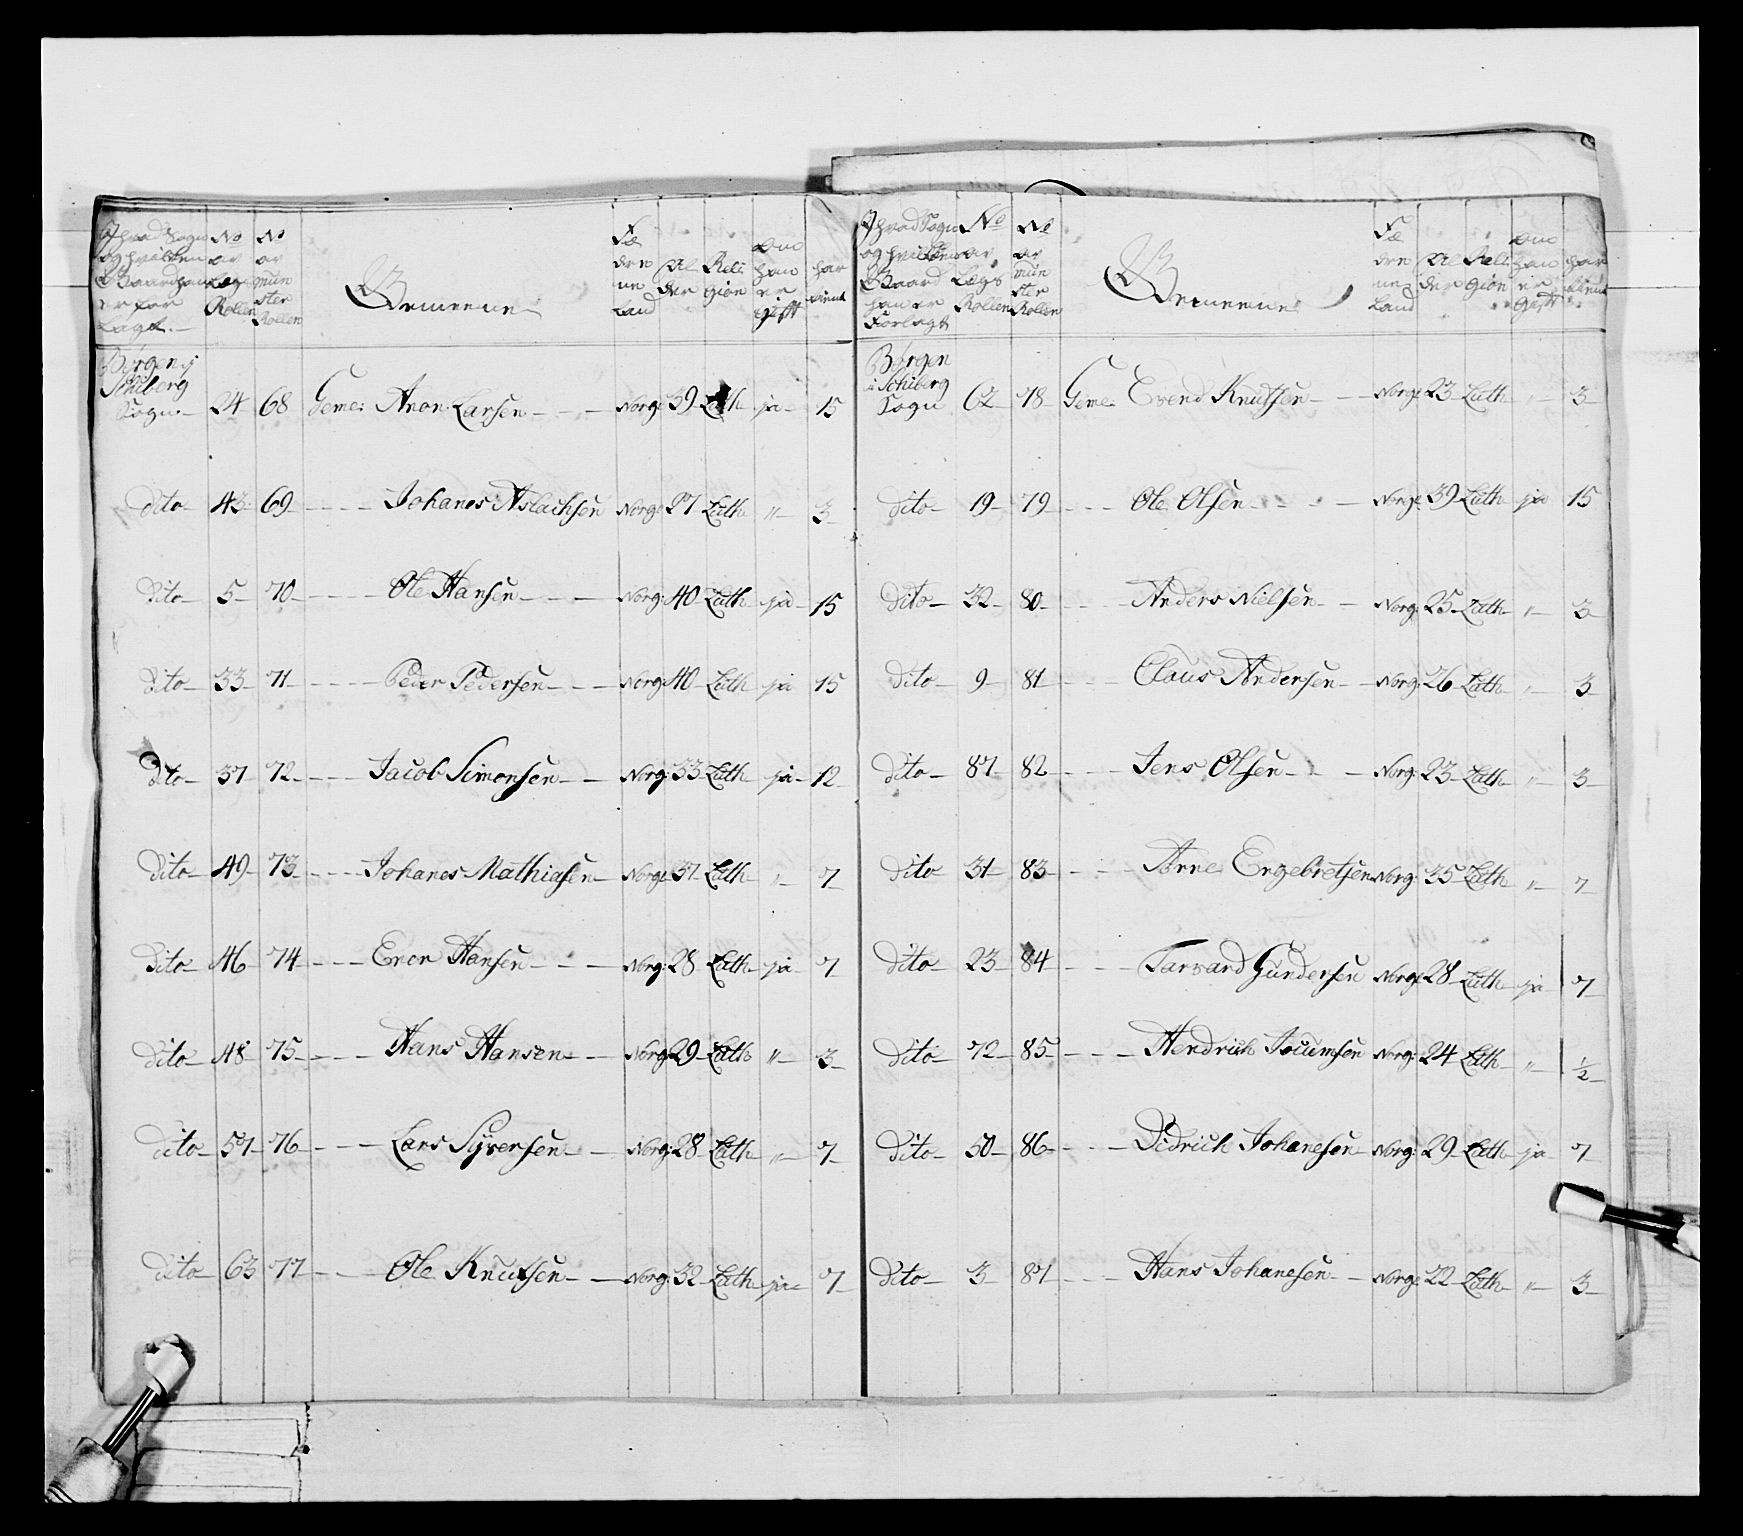 I hvad Sogn og hvilken Gaard han er for lagt.
No av Lægs Rollen
No av Mün ster Rollen
Gemeene
Fæ dre ne Land
Al der
Reli gion
Om han er gift
har tient
Børgen i Schiberg Sogn. 24 68 Geme: Aron Larsen Norg: 39 Luth ja 15
dito 43 69 Johanes Aslachsen Norg: 27 Luth " 3
dito 5 70 Ole Hansen Norg: 40 Luth ja 15
dito 33 71 Peder Pedersen Norg: 40 Luth ja 15
dito 37 72 Jacob Simonsen Norg: 33 Luth ja 12
dito 49 73 Johanes Mathiasen Norg: 37 Luth " 7
dito 46 74 Even Hansen Norg: 28 Luth ja 7
dito 48 75 Hans Hansen Norg: 29 Luth " 3
dito 57 76 Lars Syversen Norg: 28 Luth " 7
dito 63 77 Ole Knutsen Norg: 32 Luth ja 7
I hvad Sogn og hvilken Gaard han er Forlagt
No av Lægs Rollen
No av Mün ster Rollen
Gemeene
Fæ dre ne Land
Al der
Reli gion
Om han er gift
har tient
Børgen i Schiberg Sogn 62 78 Geme: Evend Knutsen Norg: 23 Luth " 3
dito 19 79 Ole Olsen Norg: 39 Luth ja 15
dito 32 80 Anders Nielsen Norg: 25 Luth " 3
dito 9 81 Claus Andersen Norg: 26 Luth " 3
dito 87 82 Jens Olsen Norg: 23 Luth " 3
dito 31 83 Arne Engebretsen Norg: 35 Luth " 7
dito 23 84 Tarvard Gundersen Norg: 28 Luth ja 7
dito 72 85 Hendrich Jocumsen Norg: 24 Luth " 1/2
dito 50 86 Didrich Johanesen Norg: 29 Luth ja 7
dito 3 87 Hans Johanesen Norg: 22 Luth " 3